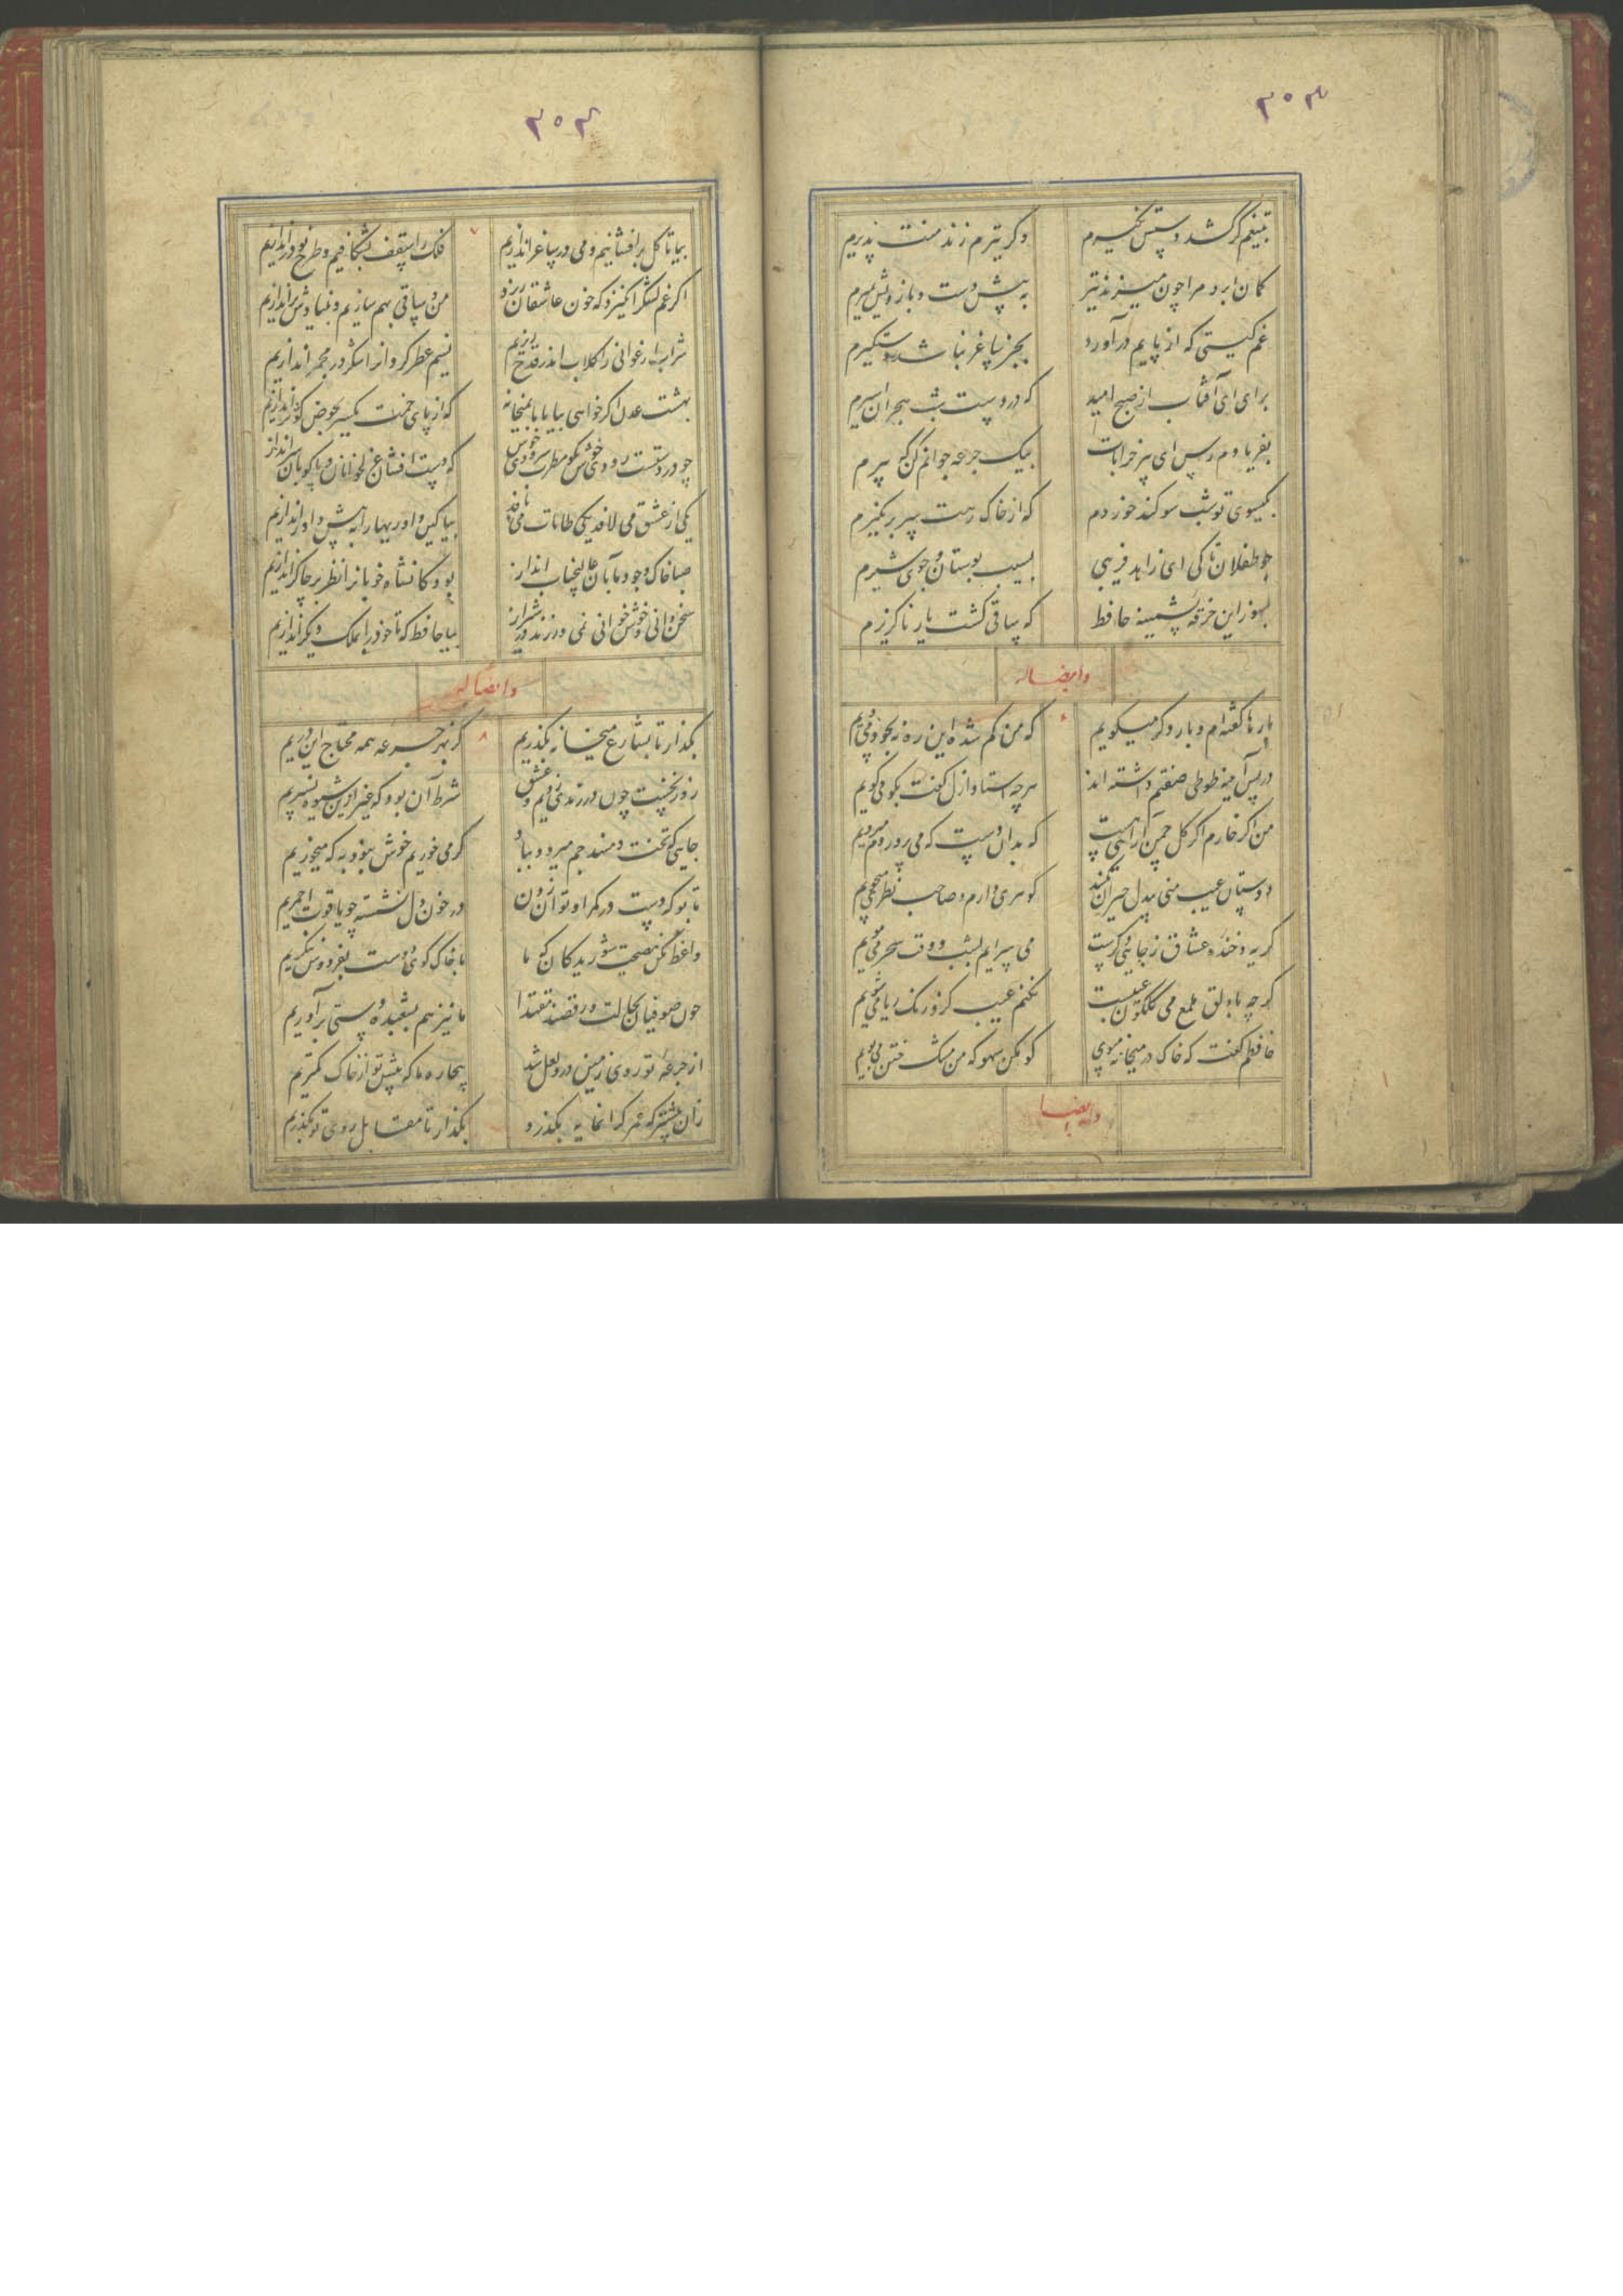 ۳۰۳
بتیغم گر کشد دستش نگیرم وگر تیرم زند منت پذیرم
کمان ابرو مرا چون میزند تیر به پیش دست و بازویش بمیرم
غم گیتی که از پایم درآورد بجز ساغر نباشد دستگیرم
برآی ای آفتاب از صبح امید که در دست شب هجران اسیرم
بفریادم رس ای پیر خرابات بیک جرعه جوانم کن که پیرم
بگیسوی تو شب سوگند خوردم که از خاک رهت سر برنگیرم
چو طفلان تاکی ای زاهد فریبی بسیب بوستان و جوی شیرم
بسوز این خرقه پشمینه حافظ که ساقی گشت یار ناگزیرم
وایضاله
بارها گفته‌ام و بار دگر میگویم که من گم شده این ره نه بخود می‌پویم
در پس آینه طوطی صفتم داشته اند هرچه استاد ازل گفت بگو می‌گویم
من اگر خارم اگر گل چمن آرایی هست که بدان دست که می پروردم میرویم
دوستان عیب منی بیدل حیران مکنید گوهری دارم و صاحب نظری میجویم
گریه و خنده عشاق ز جایی دگرست می سرایم بشب و وقت سحر می‌مویم
گرچه با دلق ملمع می گلگون عیبست نکنم عیب کزو رنگ ریا می‌شویم
حافظم گفت که خاک در میخانه مبوی گو مکن سهو که من مشک ختن می‌بویم
وایضا
۳۰۴
بیا تا گل برافشانیم و می در ساغر اندازیم فلک را سقف بشکافیم و طرح نو دراندازیم
اگر غم لشکر انگیزد که خون عاشقان ریزد من و ساقی بهم سازیم و بنیادش براندازیم
شراب ارغوانی را گلاب اندر قدح ریزیم نسیم عطر گردانرا شکر در مجمر اندازیم
بهشت عدن اگر خواهی بیا با ما بمیخانه که از پای خمت یکسر بحوض کوثر اندازیم
چو در دستست رودی خوش بگو مطرب سرودی خوش که دست افشان غزل خوانان و پاکوبان سراندازیم
یکی از عشق می لافد یکی طامات می بافد بیا کین داوریها را به پیش داور اندازیم
صبا خاک وجود ما بآن عالیجناب انداز بود کانشاه خوبانرا نظر بر خاک اندازیم
سخن دانی و خوش خوانی نمی ورزند در شیراز بیا حافظ که تا خود را بملک دیگر اندازیم
وایضاله
بگذار تا بشارع میخانه بگذریم کز بهر جرعه همه محتاج این دریم
روز نخست چون دم رندی زدیم و عشق شرط آن بود که غیر ازین شیوه نسپریم
جایی که تخت و مسند جم میرود بباد گر می خوریم خوش نبود به که میخوریم
تا بو که دست در کمر او توان زدن در خون دل نشسته چو یاقوت احمریم
واعظ مکن نصیحت شوریدگان که ما با خاک کوی دوست بفردوس ننگریم
چون صوفیان بحالت و رقصند مقتدا ما نیز هم بشعبده دستی برآوریم
از جرعه تو روی زمین در و لعل شد بیچاره ما که پیش تو از خاک کمتریم
زان پیشتر که عمر گرانمایه بگذرد بگذار تا مقابل روی تو بگذریم